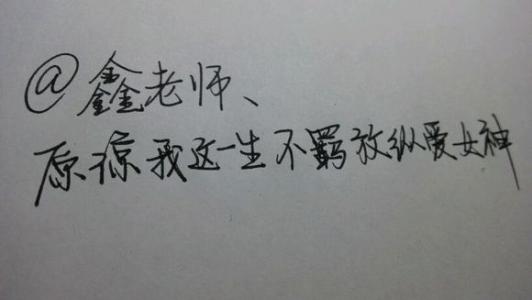 @鑫老师、
原谅我这一生不羁放纵爱女神